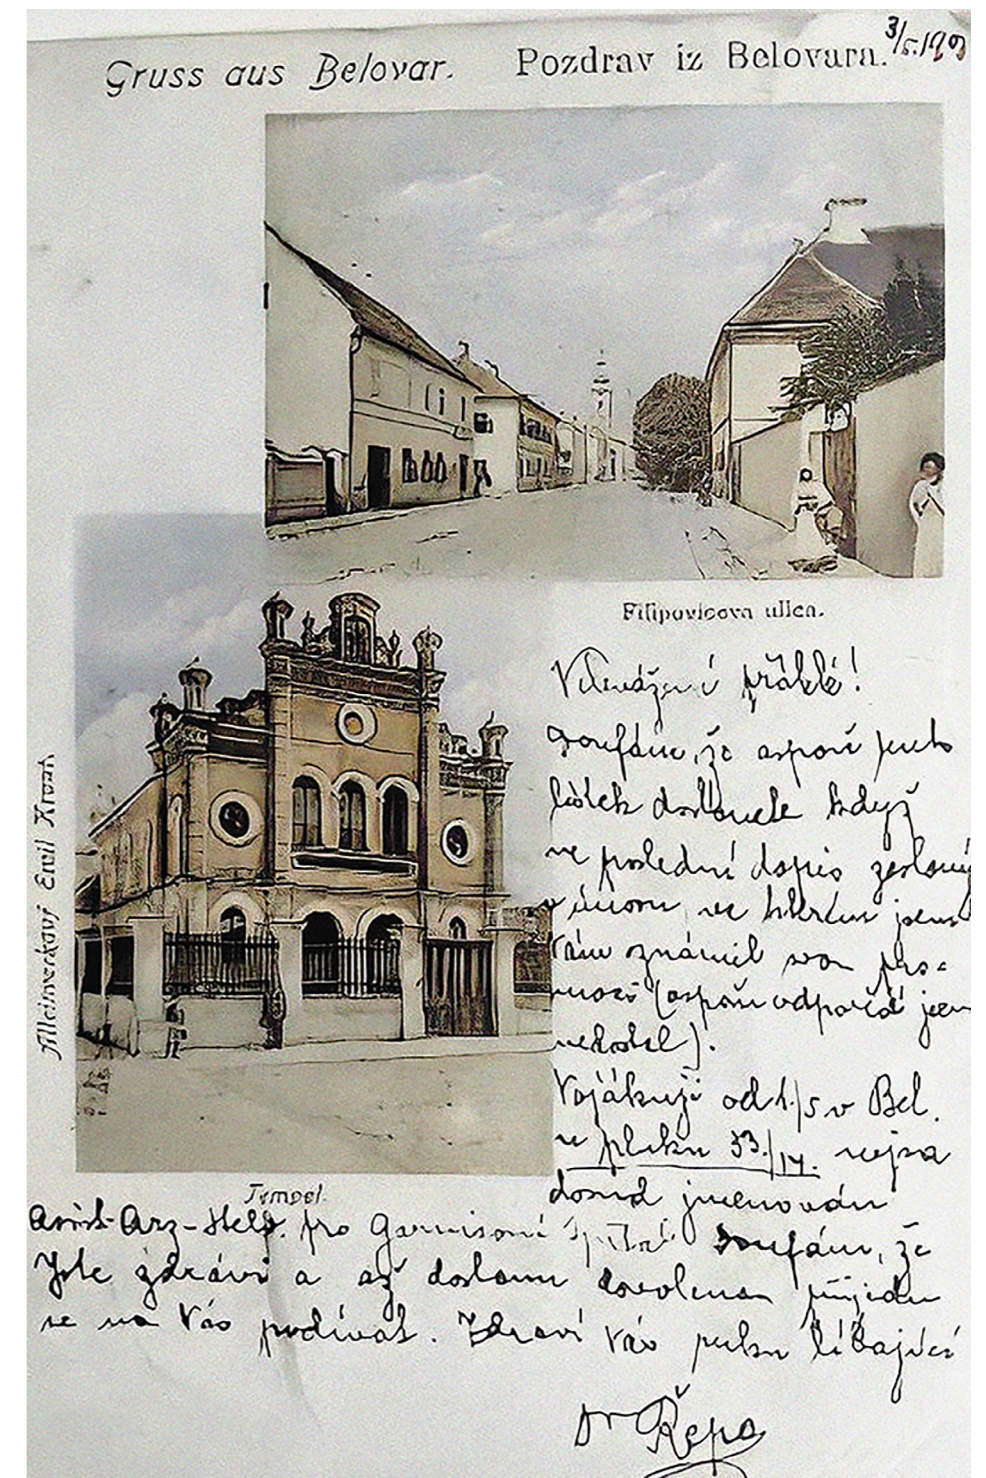 Gruss aus Belovar. Pozdrav iz Belovara.
Filipovićova ulica.
Tempel.
Alleinverkauf Emil Kraah
Vážení přátelé!
Doufám, že aspoň tento
lístek dostanete když
ne poslední dopis zeslaný
v únoru, ve kterém jsem
Vám oznámil svou
(aspoň odpověď jsem
nedostal).
Vojákuji od 1./5 v Bel.
pluku 53./14. nejsa
dosud jmenován
Assist-Arz-Stelp. pro Garnisoní Spitál Doufám, že
jste zdrávi a až dostanu dovolenou přijedu
se na Vás podívat. Zdraví Vás ruku líbající
Dr Řepa